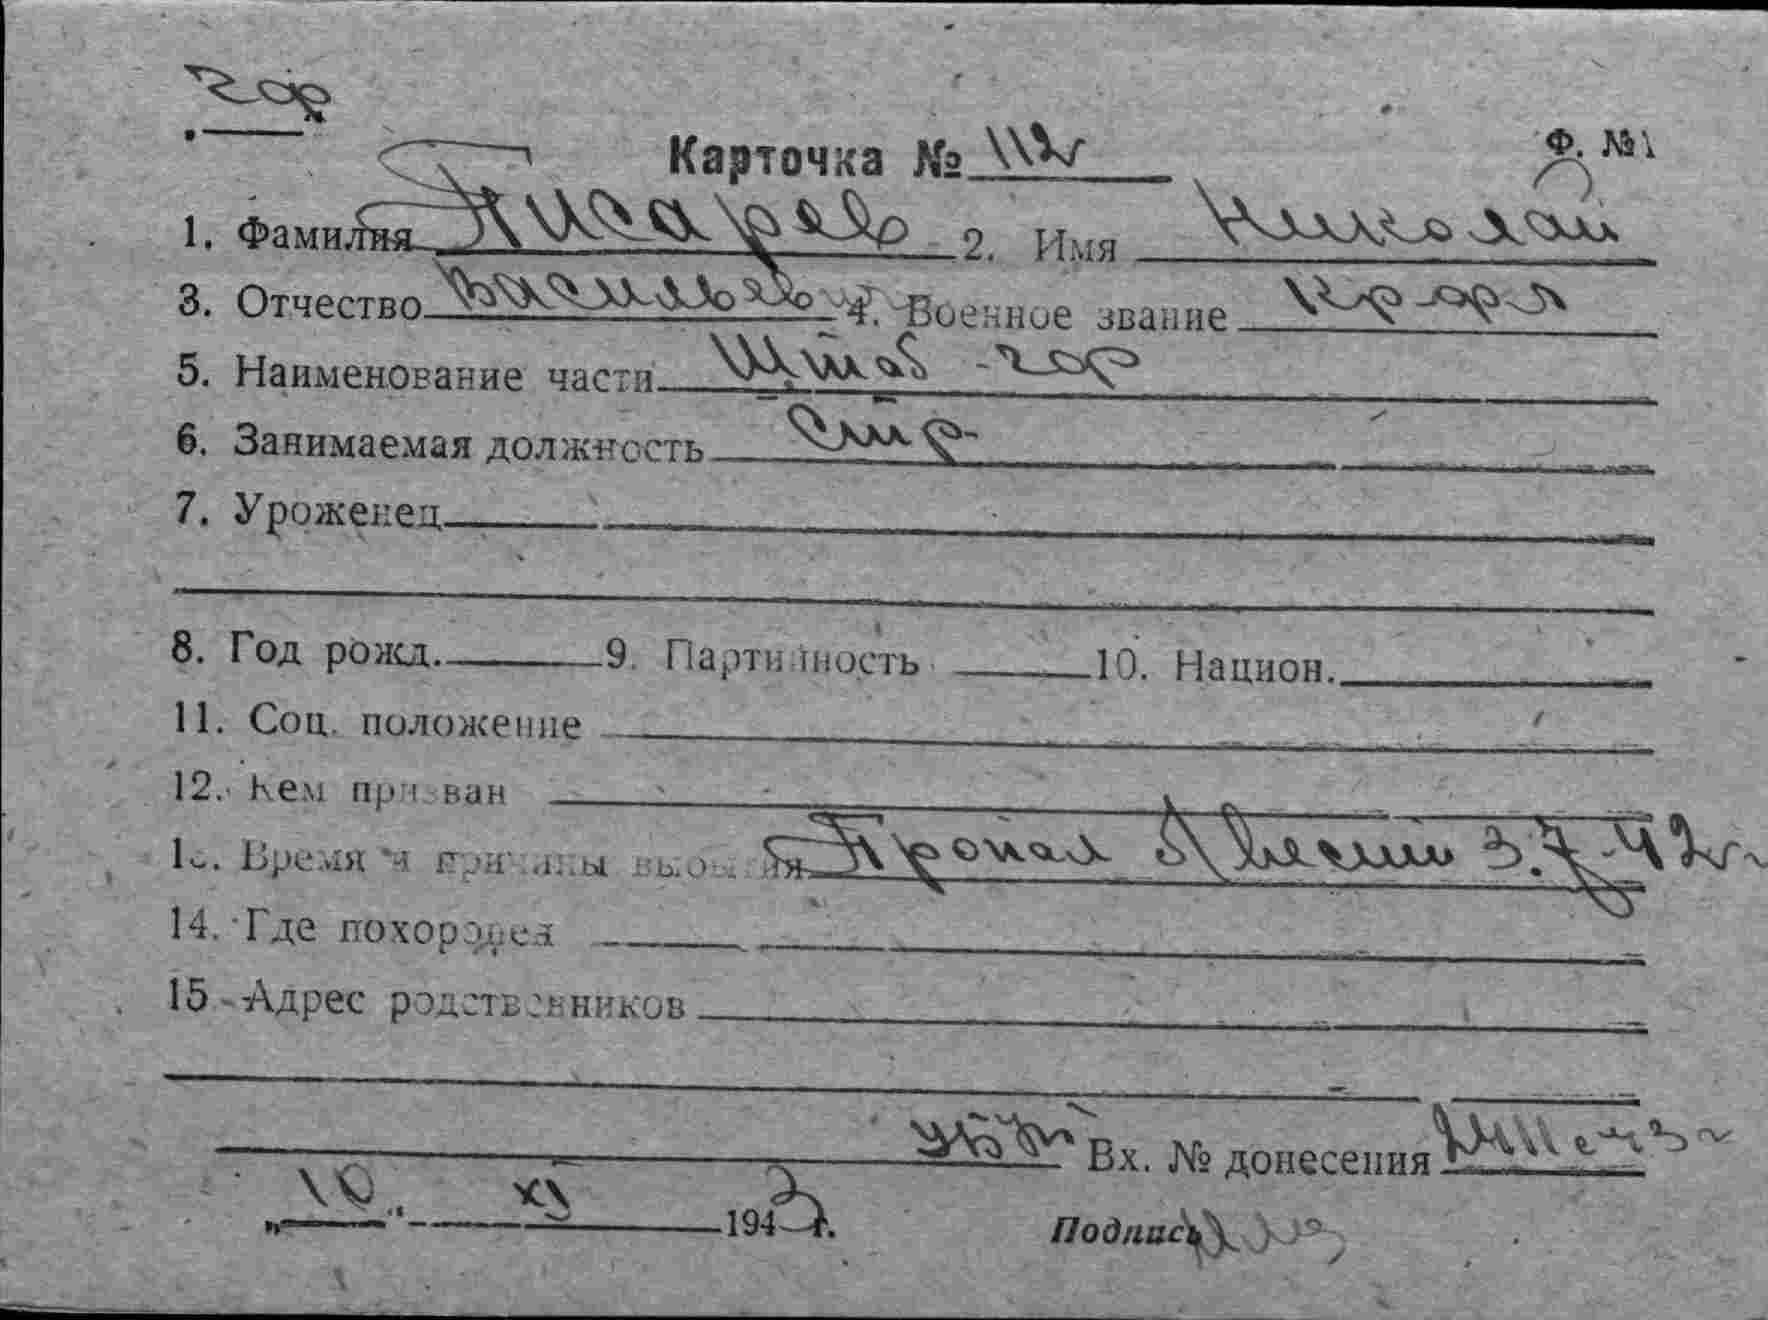 чор
Карточка № 112 Ф. №1
1. Фамилия Писарев 2. Имя Николай
3. Отчество Васильевич 4. Военное звание кр-арм
5. Наименование части Штаб чор
6. Занимаемая должность Стр.
7. Уроженец
8. Год рожд. 9. Партийность 10. Национ.
11. Соц. положение
12. Кем призван
13. Время и причины выбытия Пропал без вести 3.7.42г
14. Где похоронен
15 Адрес родственников
Вх. № донесения
„10“ XI 1943 г. Подпись